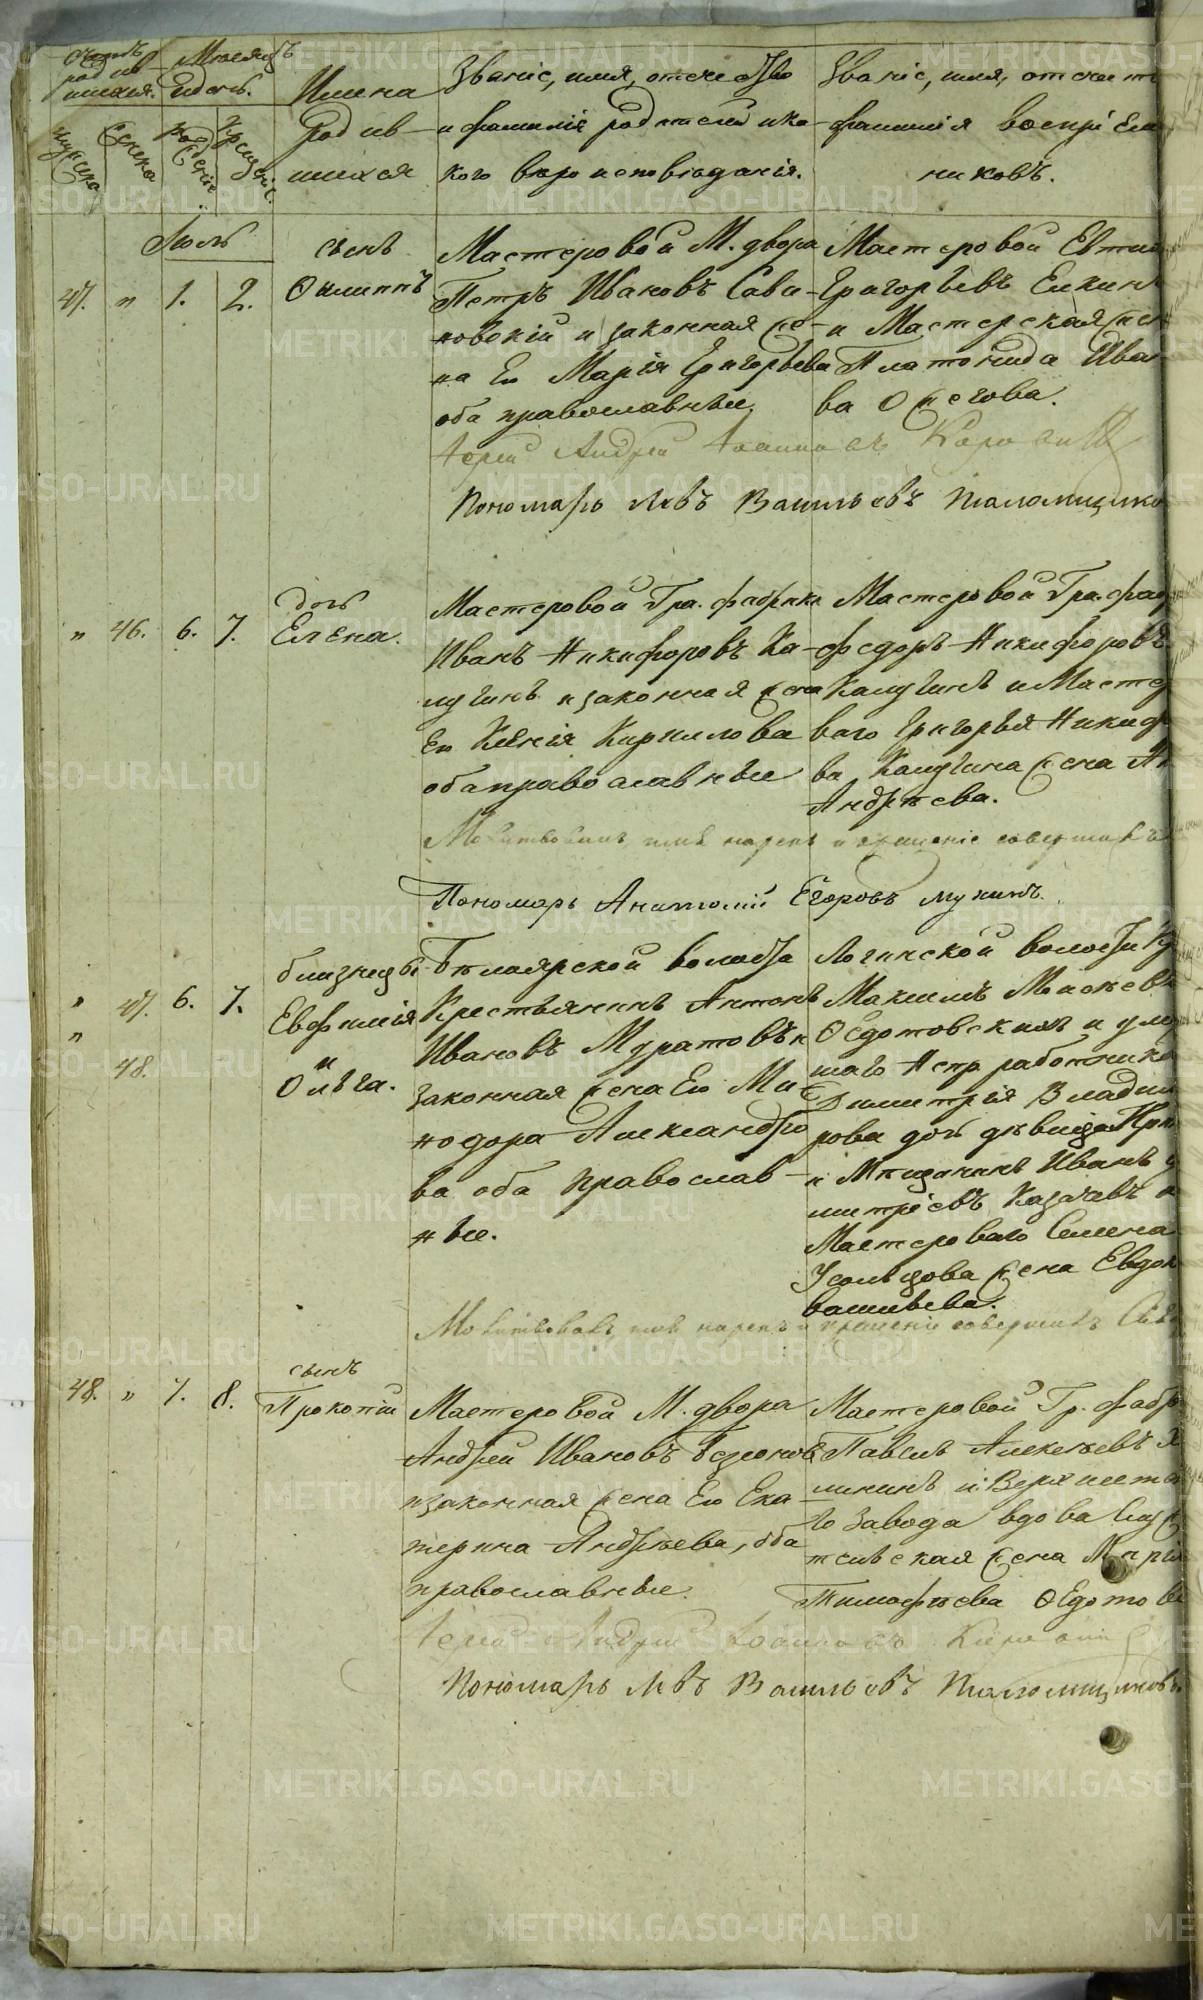 Счетъ родив- Мѣсяцъ
шихся. и день.
Мужеска Женска Рожденіе. Крещеніе.
Имена
Родив-
шихся
Званіе, имя, отечество
и фамилія родителей и ка-
кого вѣроисповѣданія.
Званіе, имя, отечест
фамилія воспріем
никовъ.
Іюль
47. " 1. 2.
сынъ
Филиппъ
Мастеровой М. двора
Петръ Ивановъ Сави-
новскій и законная же-
на Его Марія Григорьева
оба православные.
Мастеровой Евти
Григорьевъ Елкинъ
и Мастерская жен
Платонида Иван
ва Ожегова.
Іерей Андрей Іоанновъ
Пономарь Левъ Васильевъ Паломщико
" 46. 6. 7.
дочь
Елена.
Мастеровой Гра. фабрики
Иванъ Никифоровъ Ка-
лугинъ и законная жена
Его Ксенія Кирилова
оба православные
Мастеровой Гра. фаб
Федоръ Никифоровъ
Калугинъ и Мастер
ваго Григорья Никиф
ва Калугина жена
Андрѣева.
Молитвовалъ, имя нарекъ и крещеніе совершилъ
Пономарь Анатолій Егоровъ Мукинъ.
" 47. 6. 7.
" 48.
близнецы
Евфимія
и
Ольга.
Бѣлоярской волости
Крестьянинъ Антонъ
Ивановъ Муратовъ и
законная жена Его Ми-
нодора Александро
ва оба православ-
ные.
Логинской волости Кр
Максимъ Моисѣевъ
Федотовскихъ и умер
шаго работника
Димитрія Владим
рова дочь дѣвица
и Мѣщанинъ Иванъ
митріевъ Казачевъ и
Мастероваго Семена
Усольцова жена Евдок
васильева.
Молитвовалъ, имя нарекъ и крещеніе совершилъ
48. " 7. 8.
сынъ
Прокопій
Мастеровой М. двора
Андрей Ивановъ Безсонов
и законная жена Его Ека-
терина Андрѣева, оба
православные.
Мастеровой Гр. фабр
Павелъ Алексѣевъ
линъ и Верхисетс
го завода вдова Служ
тельская жена Марія
Тимофѣева Федотов
Іерей Андрей Іоанновъ
Пономарь Левъ Васильевъ Паломщиковъ.
METRIKI.GASO-URAL.RU